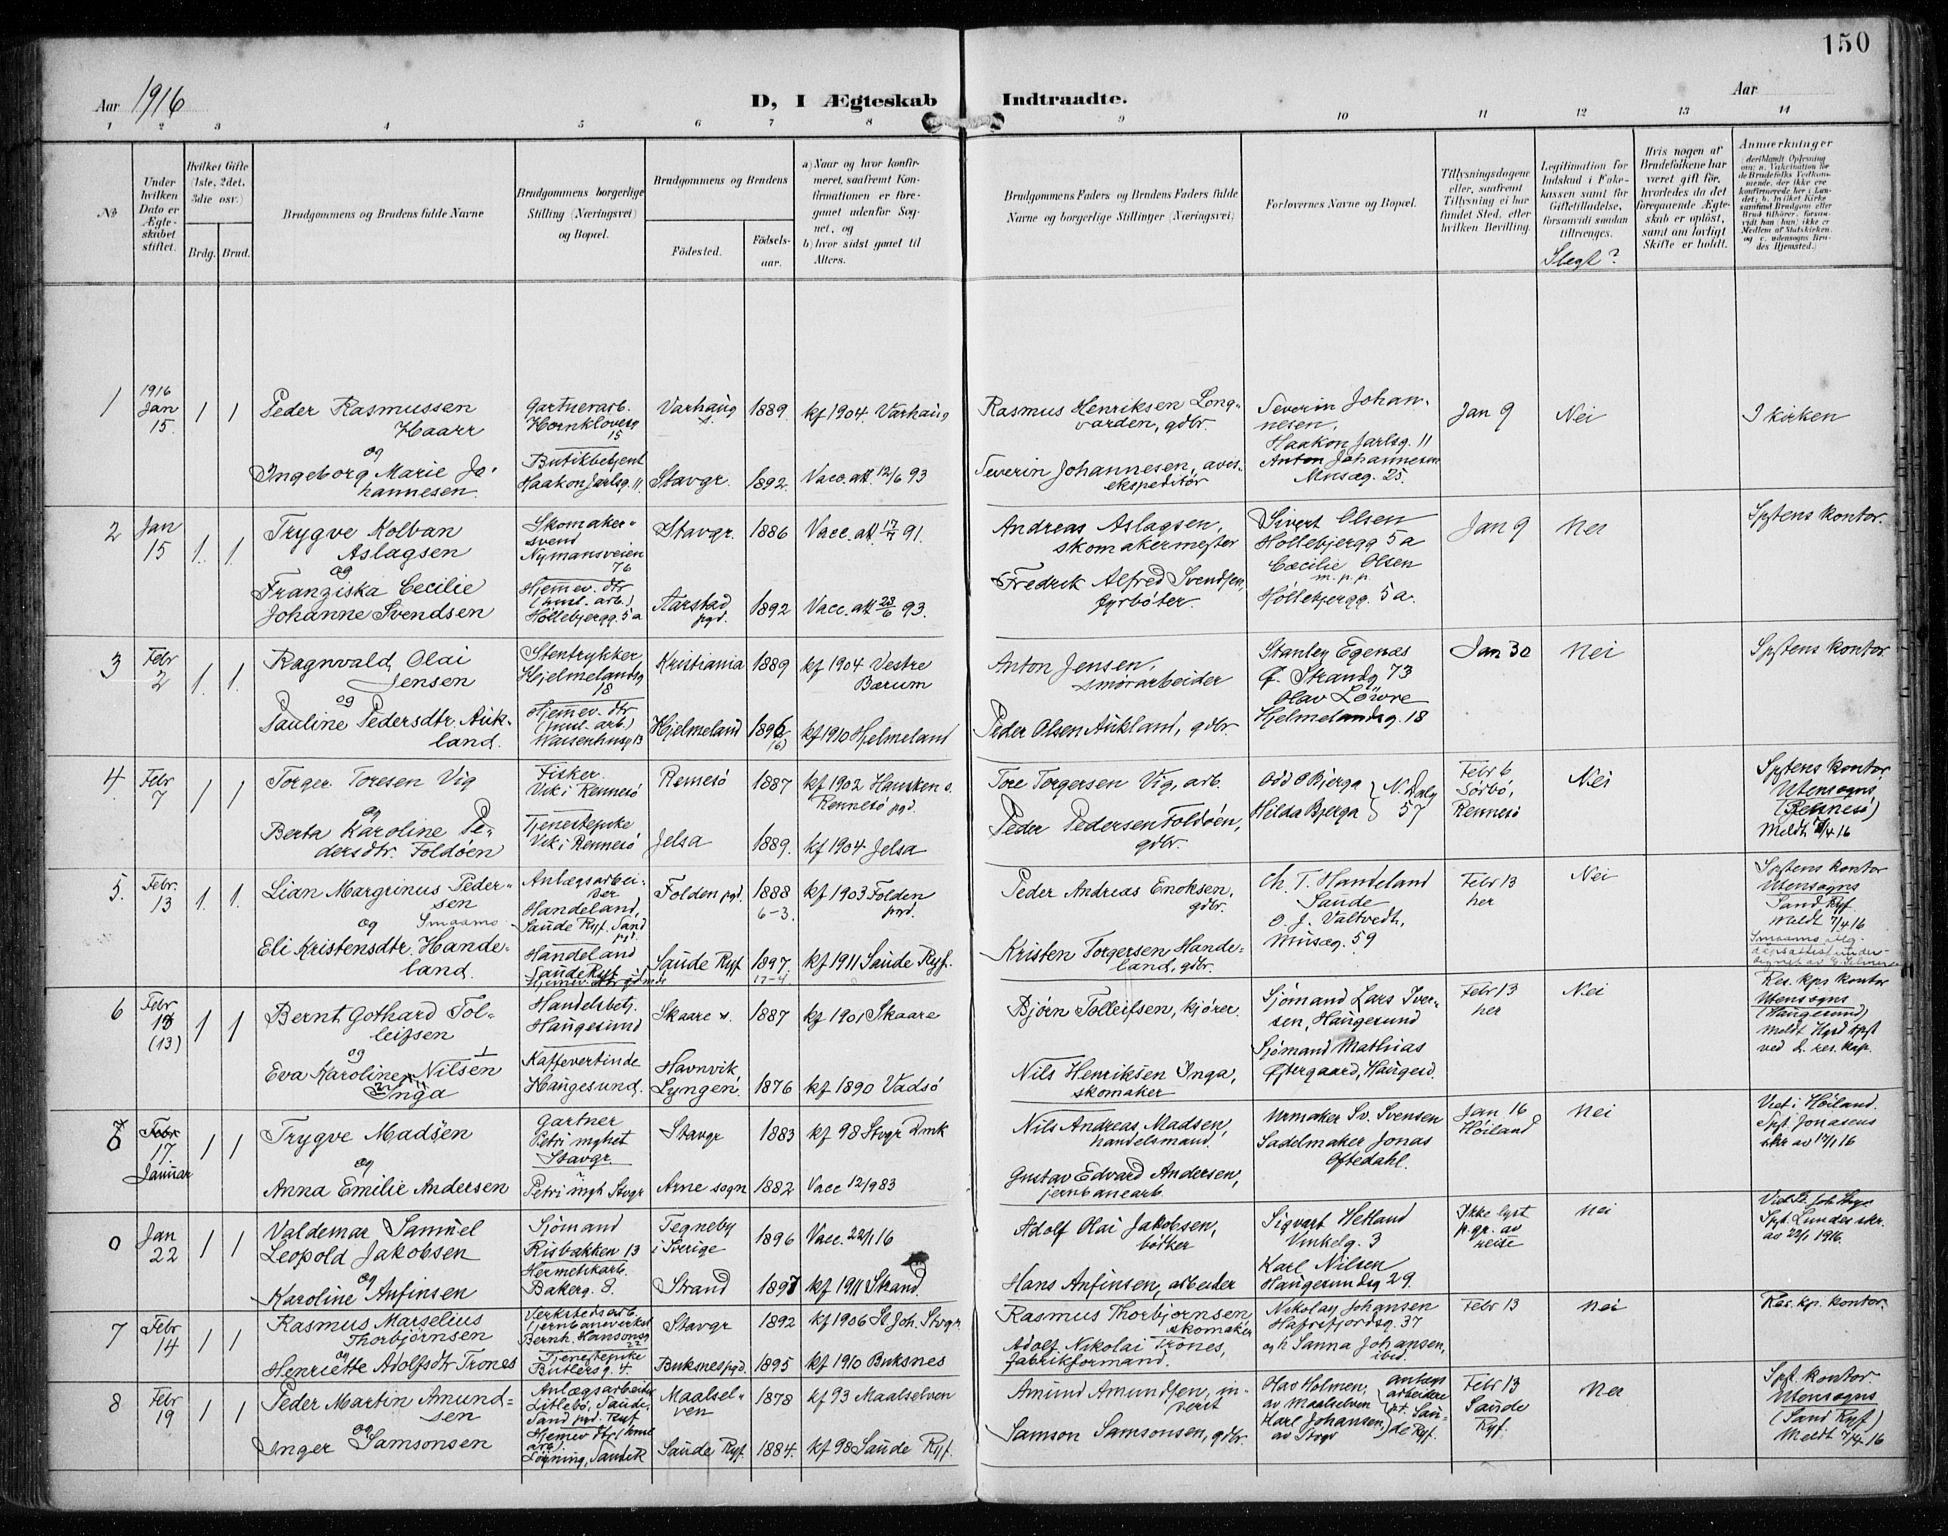 150
Aar 1916
D, I Ægteskab Indtraadte.
Aar
1 2 3 4 5 6 7 8 9 10 11 12 13 14
No
Under hvilken Dato er Ægteskabet stiftet.
Hvilket Gifte (1ste, 2det, 3die osv.)
Brdg. Brud.
Brudgommens og Brudens fulde Navne
Brudgommens borgerlige Stilling (Næringsvei) og Bopæl.
Brudgommens og Brudens
Födested.
Födsels-aar.
a) Naar og hvor konfirmeret, saafremt Konfirmationen er foregaaet udenfor Sognet, og
b) hvor sidst gaaet til Alters.
Brudgommens Faders og Brudens Faders fulde Navne og borgerlige Stillinger (Næringsvei)
Forlovernes Navne og Bopæl.
Tillysningsdagene eller, saafremt Tillysning ei har fundet Sted, efter hvilken Bevilling.
Legitimation for Indskud i Enkekassen samt for Giftetilladelse, forsaavidt saadan tiltrænges.
Slegt?
Hvis nogen af Brudefolkene har været gift før, hvorledes da det foregaaende Ægteskab er opløst, samt om lovligt Skifte er holdt.
Anmerkninger
1 1916 Jan 15. 1 1 Peder Rasmussen Haarr
og
Ingeborg Marie Johannesen.
Gartnerarb. Hornklovesg 15
Butikbetjent Haakon Jarlsg. 11.
Varhaug 1889. kf 1904 Varhaug
Stavgr. 1892. Vacc. att. 12/6 93
Rasmus Henriksen Longvarden, gdbr.
Severin Johannesen, avisekspeditør
Severin Johannesen, Haakon Jarlsg. 11
Anton Johannesen Musæg. 25.
Jan 9 Nei I kirken
2 Jan 15 1. 1. Trygve Kolban Aslagsen
og
Franziska Cecilie Johanne Svendsen
Skomakersvend Nymansveien 76
Hjemmev. dtr (husl. arb.) Hollebjergg. 5a
Stavgr. 1886 Vacc. att. 17/7 91.
Aarstad pgd. 1892 Vacc. att 28/6 93.
Andreas Aslagsen, skomakermester
Fredrik Alfred Svendsen, fyrbøter.
Sivert Olsen Hollebjergg 5a
Cæcilie Olsen m.p.p. Hollebjergg. 5a.
Jan 9 Nei Spstens kontor.
3 Febr 2 1. 1. Ragnvald Olai Jensen
og
Pauline Pedersdtr. Aukland.
Stentrykker Hjelmelandsg 18
Hjemmev. dtr (husl. arb) Waisenhusg 13
Kristiania 1889 kf 1904 Vestre Bærum
Hjelmeland 1896 (6) kf 1910 Hjelmeland
Anton Jensen, smørarbeider
Peder Olsen Aukland, gdbr.
Stanley Egenæs Ø. Strandg 73
Olav Löwre Hjelmelandsg. 18
Jan 30 Nei Spstens kontor
4 Febr 7 1 1 Torger Toresen Vig
og
Berta Karoline Pedersdtr. Foldöen
Fisker. Vik i Rennesö
Tjenestepike Vik i Rennesö
Rennesö 1887 kf 1902 Hausken s. Rennesö pgd.
Jelsa 1889. kf 1904 Jelsa
Tore Torgersen Vig, arb.
Peder Pedersen Foldöen, gdbr.
Odd O Bjerga
Hilda Bjerga } N. Dalg 57
Febr 6 Sörbö, Rennesö
Nei
Spstens kontor Utensogns (Rennesö) Meldt 7/4 16
5. Febr. 13 1. 1. Lian Margrinus Pedersen
og Smaamo
Eli Kristensdtr. Handeland.
Anlægsarbeider Handeland, Saude Ryf. Sand
Handeland Saude Ryf Hjemmev. dtr gdmd
Folden pgd. 1888 6-3. kf 1903 Folden pgd.
Saude Ryf 1897 17-4. kf 1911 Saude Ryf.
Peder Andreas Enoksen, gdbr.
Kristen Torgersen Handeland, gdbr.
Ch. T. Handeland Saude
O. J. Valtvedt, Musæg. 59
Febr 13 her
Nei
Spstens kontor Utensogns Sand Ryf Meldt 7/4 16
6 Febr 13 (13) 1 1 Bernt Gothard Tolleifsen
og
Eva Karoline Nilsen Inga
Handelsbetj. Haugesund
Kaffevertinde Haugesund.
Skaare s. 1887 kf 1901 Skaare
Havnvik, Lyngen 1876 kf 1890 Vadsö
Bjørn Tolleifsen, kjører.
Nils Henriksen Inga, skomaker
Sjömand Lars Iversen, Haugesund
Sjömand Mathias Østergaard, Haugesd.
Febr 13 her
Nei
Res. kps kontor Utensogns (Haugesund) Meldt Hgsd spst ved res. kap.
7 Febr 17 Januar 1 1 Trygve Madsen
og
Anna Emilie Andersen
Gartner Petri mghet Stavgr.
Petri mgh Stvgr
Stavgr 1883 kf 98 Stvgr Dmk
Arne sogn 1882 Vacc 12/9 83
Nils Andreas Madsen, handelsmand.
Gustav Edvard Andersen, jernbanearb.
Urmaker Sv. Svensen
Sadelmaker Jonas Oftedahl.
Jan 16 Höiland
Nei
Viet i Höiland. Spst. Jonasens skr av 17/1 16
0 Jan 22 1 1 Valdemar Samuel Leopold Jakobsen
og
Karoline Anfinsen
Sjömand Risbakken 13
Hermetikarb. Bakerg. 8.
Tegneby i Sverige 1896 Vacc. 22/1 16
Strand 1897 kf 1911 Strand.
Adolf Olai Jakobsen, bötker
Hans Anfinsen, arbeider
Sigvart Hetland Vinkelg. 3
Karl Nilsen Haugesundsg 29.
Ikke lyst p. gr. av reise
Nei
Viet St. Joh. Stvgr. Spst. Lundes skr. av 22/1 1916.
7 Febr 14 1 1 Rasmus Marselius Thorbjörnsen
og
Henriette Adolfsdtr Trones
Verkstedsarb. (jernbaneverkst Bernh. Hansensg 22
Tjenestepike Butlersg. 4.
Stavgr 1892 kf 1906 St. Joh. Stvgr.
Buksnes pgd. 1895 kf 1910 Buksnes
Rasmus Thorbjørnsen skomaker
Adolf Nikolai Trones, fabrikformand.
Nikolay Johansen Hafrsfjordsg. 37
og h. Sanna Johansen, ibid.
Febr 13 Nei Res. kp. kontor.
8 Febr 19 1 1 Peder Martin Amundsen
og
Inger Samsonsen
Anlægsarbeider Litlebö, Saude, Sand pgd. Ryf
Hjemmev. dtr (husl arb). Løgning, Saude R
Maalselven 1878 kf 93 Maalselven
Saude Ryf. 1884. kf 98 Saude Ryf.
Amund Amundsen, inderst
Samson Samsonsen, gdbr.
Olas Holmen, av Maalselven
Karl Johansen av Stvgr } anlægsarbeidere p.t. Saude Ryf.
Febr 13 Saude Ryf.
Nei
Spst. kontor Utensogns (Sand Ryf) Meldt 7/4 16